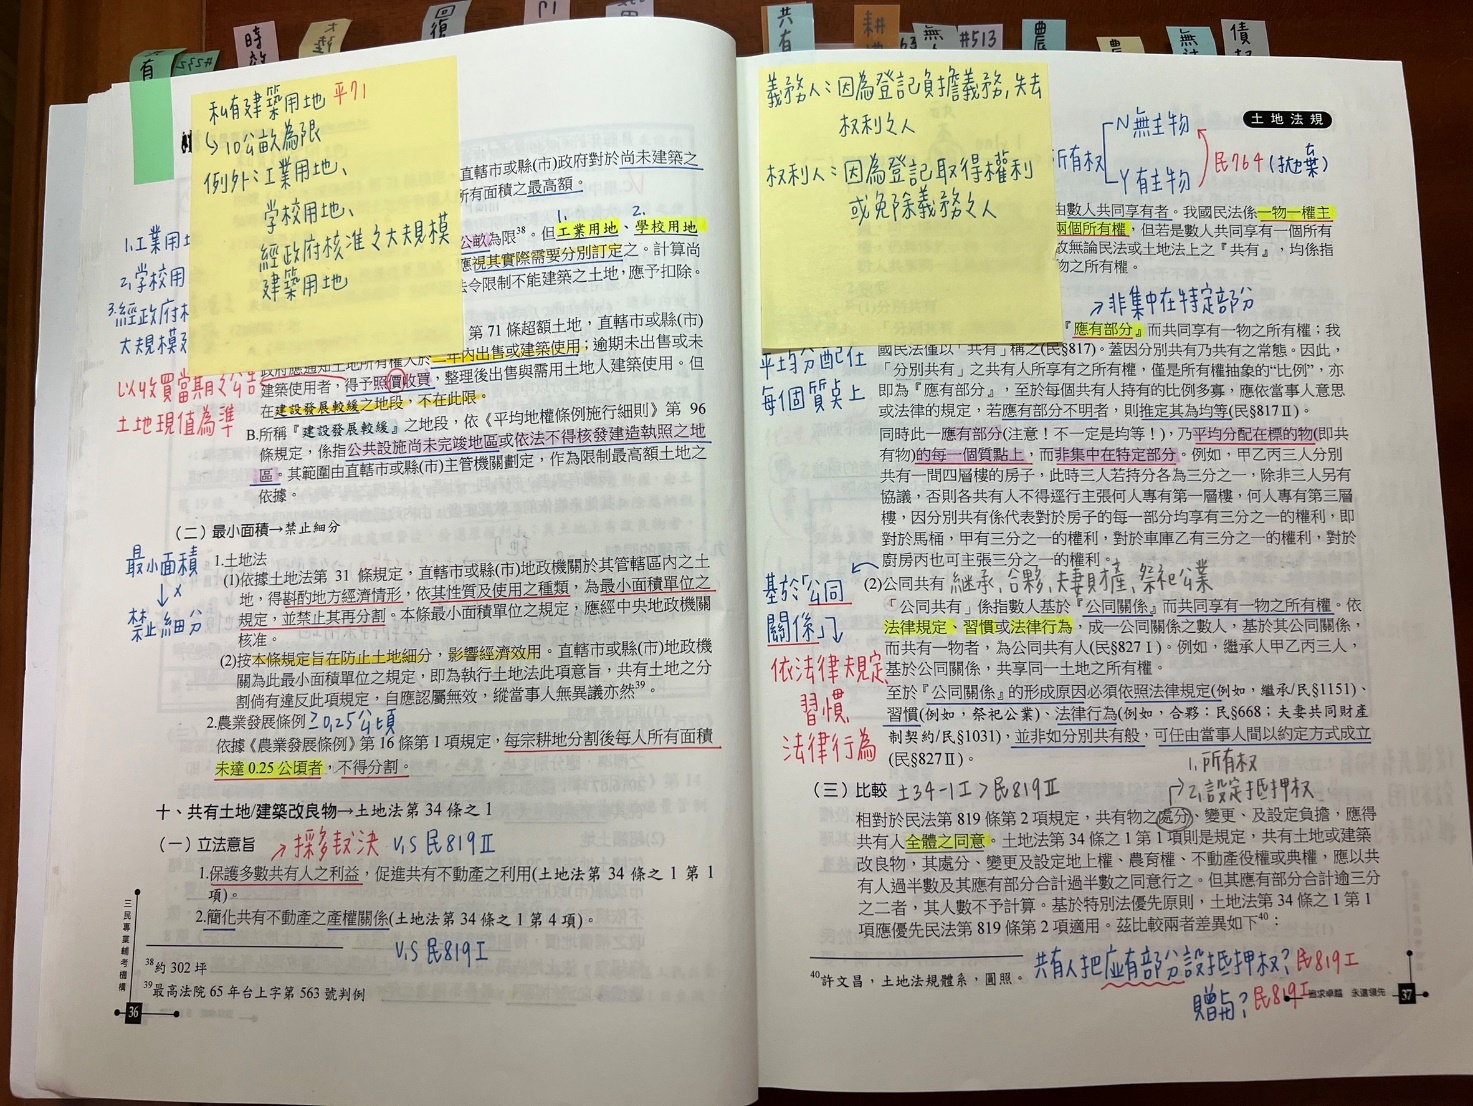 有
#232
回復
共有
#513
農
債
私有建築用地 平71
↳10公畝為限
例外：工業用地、
學校用地、
經政府核准之大規模
建築用地
直轄市或縣(市)政府對於尚未建築之
所有面積之最高額。
1. 2.
公畝為限38。但工業用地、學校用地
應視其實際需要分別訂定之。計算尚
法令限制不能建築之土地，應予扣除。
1.工業用
2.學校用
3.經政府核
大規模建
第 71 條超額土地，直轄市或縣(市)
政府應通知土地所有權人於二年內出售或建築使用；逾期未出售或未
建築使用者，得予照價收買，整理後出售與需用土地人建築使用。但
在建設發展較緩之地段，不在此限。
以收買當期之公告
土地現值為準
B.所稱『建設發展較緩』之地段，依《平均地權條例施行細則》第 96
條規定，係指公共設施尚未完竣地區或依法不得核發建造執照之地
區。其範圍由直轄市或縣(市)主管機關劃定，作為限制最高額土地之
依據。
(二) 最小面積→禁止細分
最小面積
↓
禁止細分
1.土地法
(1)依據土地法第 31 條規定，直轄市或縣(市)地政機關於其管轄區內之土
地，得斟酌地方經濟情形，依其性質及使用之種類，為最小面積單位之
規定，並禁止其再分割。本條最小面積單位之規定，應經中央地政機關
核准。
(2)按本條規定旨在防止土地細分，影響經濟效用。直轄市或縣(市)地政機
關為此最小面積單位之規定，即為執行土地法此項意旨，共有土地之分
割倘有違反此項規定，自應認屬無效，縱當事人無異議亦然39。
2.農業發展條例 ≥0.25公頃
依據《農業發展條例》第 16 條第 1 項規定，每宗耕地分割後每人所有面積
未達 0.25 公頃者，不得分割。
十、共有土地/建築改良物→土地法第 34 條之 1
(一) 立法意旨 →採多數決 V.S 民819Ⅱ
1.保護多數共有人之利益，促進共有不動產之利用(土地法第 34 條之 1 第 1
項)。
2.簡化共有不動產之產權關係(土地法第 34 條之 1 第 4 項)。
V.S 民819Ⅰ
38約 302 坪
39最高法院 65 年台上字第 563 號判例
三民專業輔考機構
36
義務人：因為登記負擔義務,失去
權利之人
權利人：因為登記取得權利
或免除義務之人
土地法規
所有權
N無主物
Y有主物
民764(拋棄)
由數人共同享有者。我國民法係一物一權主
兩個所有權，但若是數人共同享有一個所有
故無論民法或土地法上之『共有』，均係指
物之所有權。
↗非集中在特定部分
『應有部分』而共同享有一物之所有權；我
國民法僅以「共有」稱之(民§817)。蓋因分別共有乃共有之常態。因此，
「分別共有」之共有人所享有之所有權，僅是所有權抽象的“比例”，亦
即為『應有部分』，至於每個共有人持有的比例多寡，應依當事人意思
或法律的規定，若應有部分不明者，則推定其為均等(民§817Ⅱ)。
平均分配在
每個質點上
同時此一應有部分(注意！不一定是均等！)，乃平均分配在標的物(即共
有物)的每一個質點上，而非集中在特定部分。例如，甲乙丙三人分別
共有一間四層樓的房子，此時三人若持分各為三分之一，除非三人另有
協議，否則各共有人不得逕行主張何人專有第一層樓，何人專有第三層
樓，因分別共有係代表對於房子的每一部分均享有三分之一的權利，即
對於馬桶，甲有三分之一的權利，對於車庫乙有三分之一的權利，對於
廚房丙也可主張三分之一的權利。
(2)公同共有 繼承,合夥,夫妻財產,祭祀公業
基於「公同
關係」
依法律規定
習慣
法律行為
「公同共有」係指數人基於『公同關係』而共同享有一物之所有權。依
法律規定、習慣或法律行為，成一公同關係之數人，基於其公同關係，
而共有一物者，為公同共有人(民§827Ⅰ)。例如，繼承人甲乙丙三人，
基於公同關係，共享同一土地之所有權。
至於『公同關係』的形成原因必須依照法律規定(例如，繼承/民§1151)、
習慣(例如，祭祀公業)、法律行為(例如，合夥：民§668；夫妻共同財產
制契約/民§1031)，並非如分別共有般，可任由當事人間以約定方式成立
(民§827Ⅱ)。
1.所有權
(三) 比較 土34-1Ⅰ＞民819Ⅱ
2.設定抵押權
相對於民法第 819 條第 2 項規定，共有物之處分、變更、及設定負擔，應得
共有人全體之同意。土地法第 34 條之 1 第 1 項則是規定，共有土地或建築
改良物，其處分、變更及設定地上權、農育權、不動產役權或典權，應以共
有人過半數及其應有部分合計過半數之同意行之。但其應有部分合計逾三分
之二者，其人數不予計算。基於特別法優先原則，土地法第 34 條之 1 第 1
項應優先民法第 819 條第 2 項適用。茲比較兩者差異如下40：
40許文昌，土地法規體系，圓照。
共有人把應有部分設抵押權?民819Ⅰ
贈与?民819Ⅰ
追求卓越 永遠領先
37